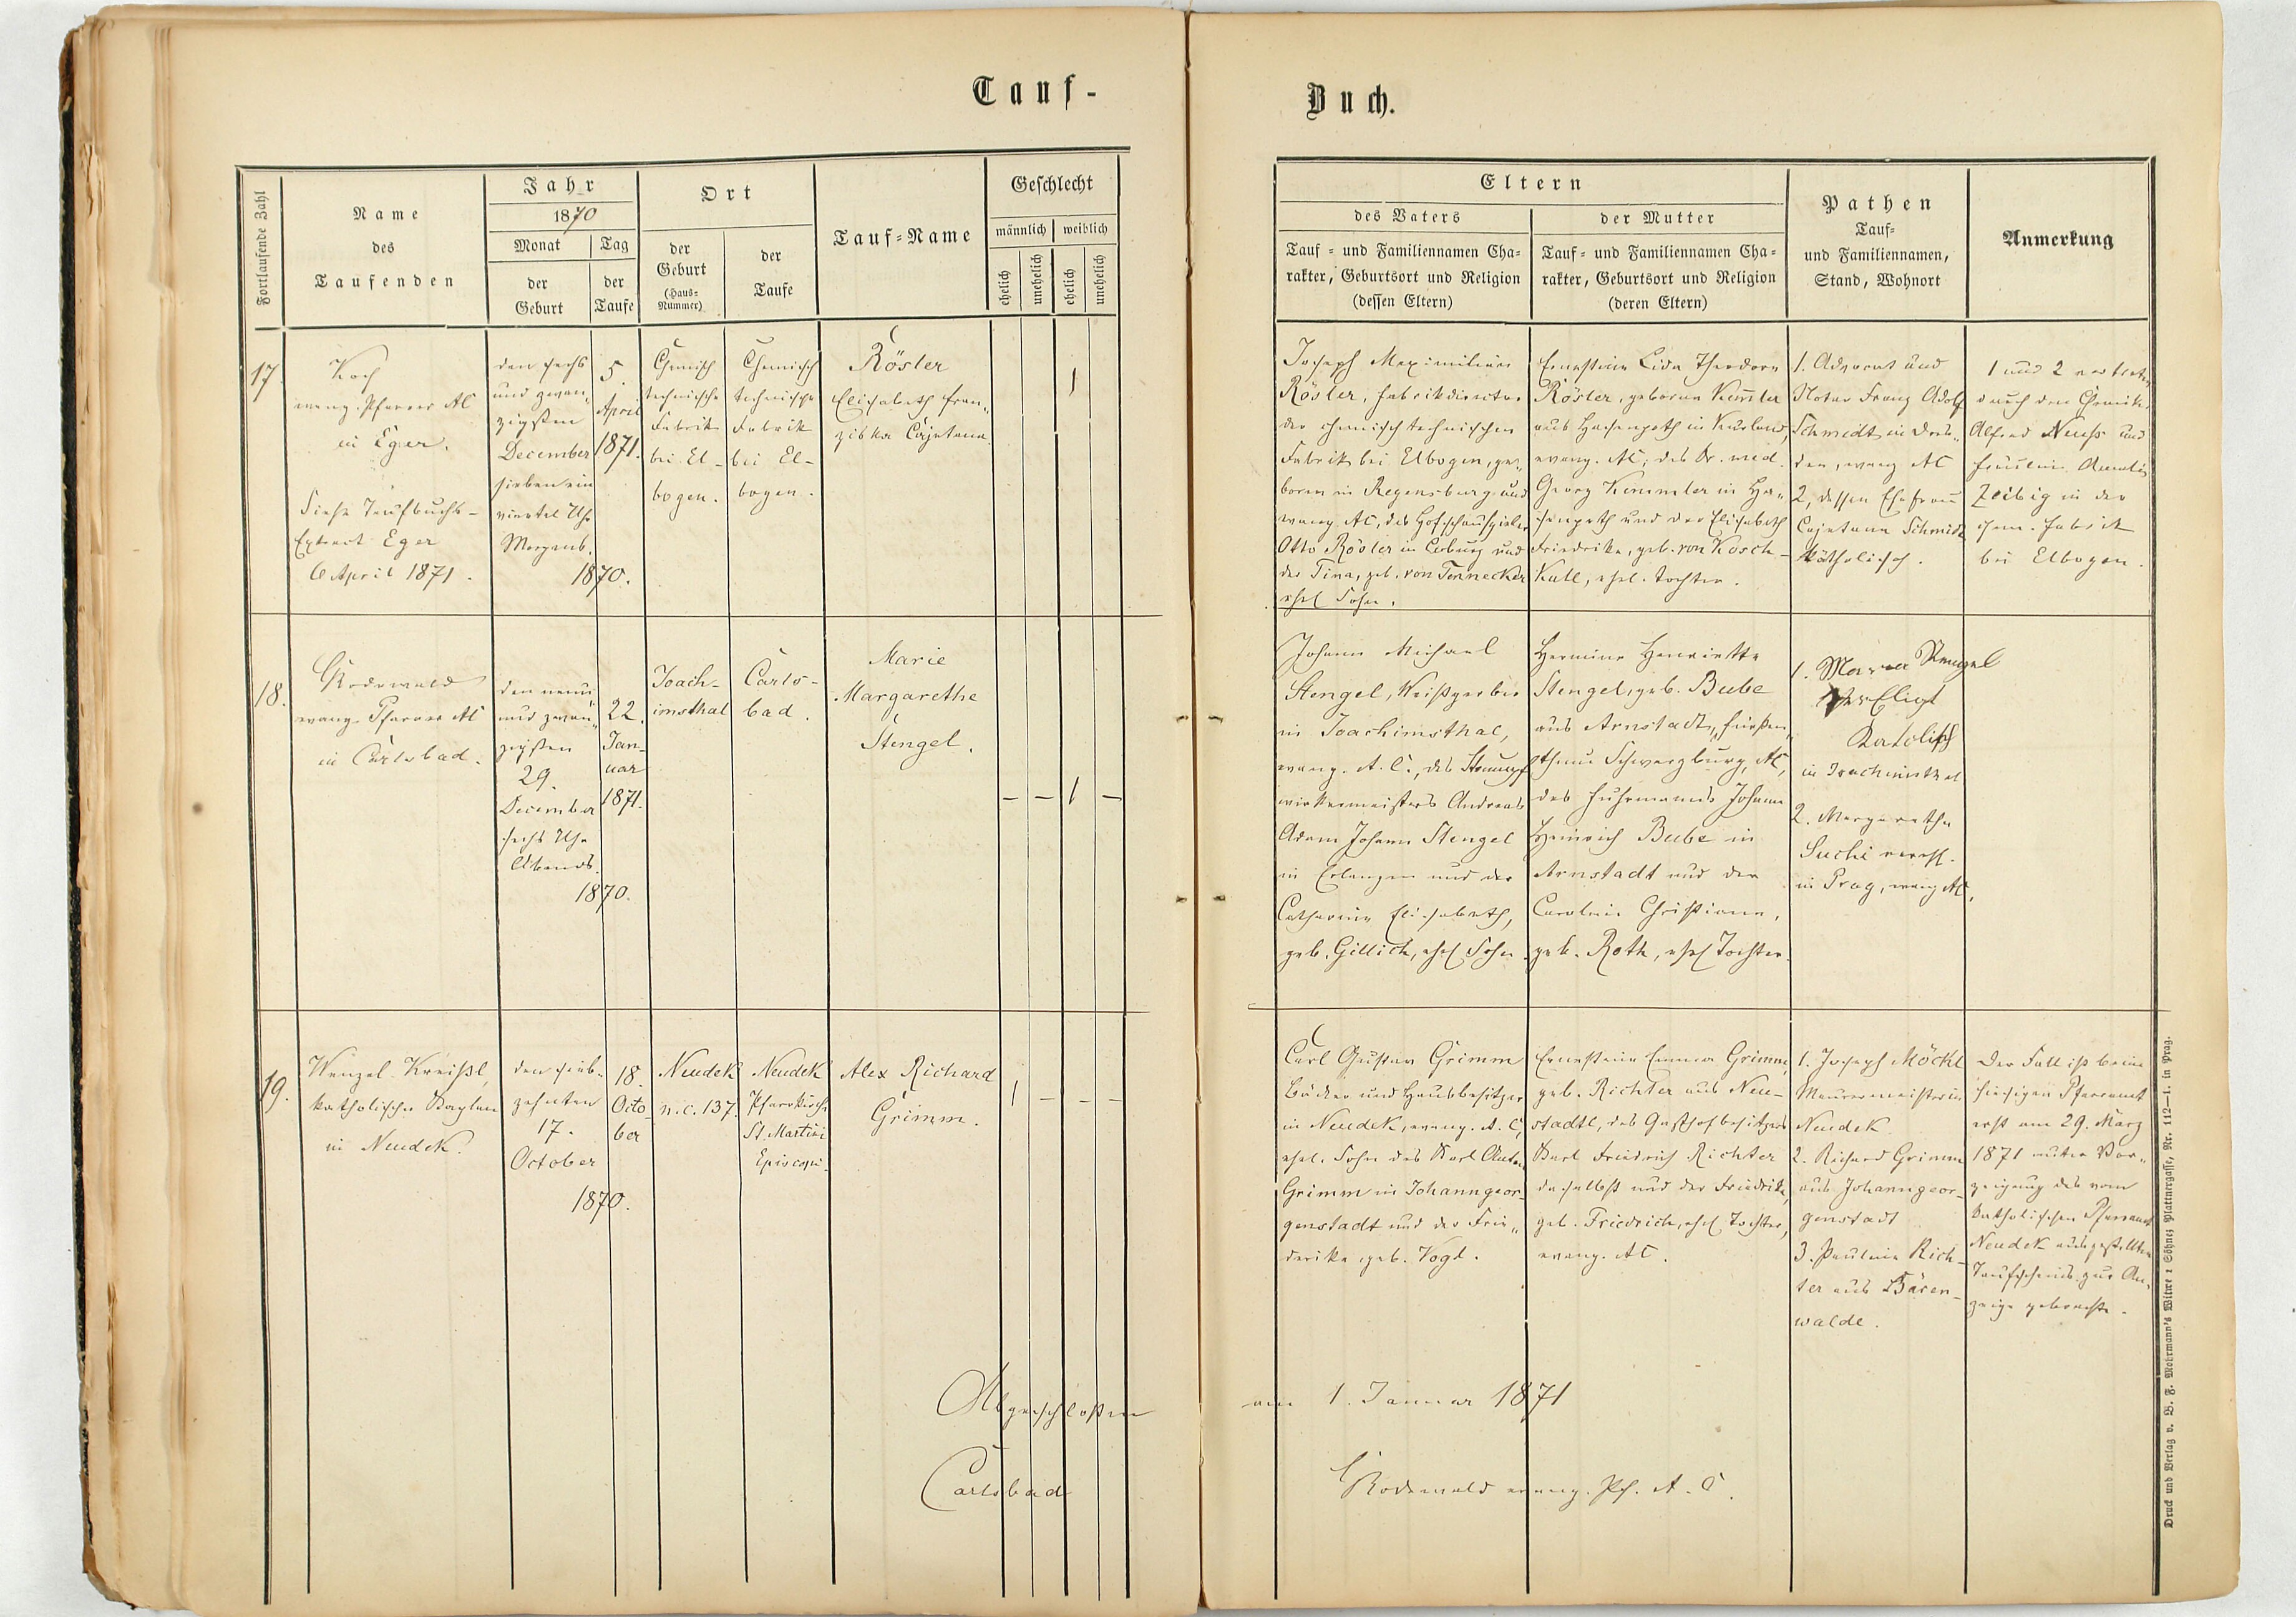 Tauf-
Buch.
Fortlaufende Zahl
Name
des
Taufenden
Jahr
1870
Monat
der
Geburt
Tag
der
Taufe
Ort
der
Geburt
(Haus-
Nummer)
der
Taufe
Tauf-Name
Geschlecht
männlich
weiblich
ehelich
unehelich
ehelich
unehelich
Eltern
des Vaters
Tauf- und Familiennamen Cha-
rakter, Geburtsort und Religion
(dessen Eltern)
der Mutter
Tauf- und Familiennamen Cha-
rakter, Geburtsort und Religion
(deren Eltern)
Pathen
Tauf-
und Familiennamen,
Stand, Wohnort
Anmerkung
17.
Koch
evang. Pfarrer AC
in Eger.
Siehe Taufbuchs-
Extract Eger
6 April 1871.
den sechs
und zwan-
zigsten
December
sieben ein
viertel Uhr
Morgens.
1870.
5.
April
1871.
Chemisch
technische
Fabrik
bei El-
bogen.
Chemisch
technische
Fabrik
bei El-
bogen.
Rösler
Elisabeth Fran-
ziska Cajetana.
1
Joseph Maximilian
Rösler, Fabrikdirector
der chemisch technischen
Fabrik bei Elbogen, ge-
boren in Regensburg und
evang. AC, des Hofschauspielers
Otto Rösler in Coburg und
der Tina, geb. von Tennecker
ehel Sohn.
Ernestine Lida Theodora
Rösler, geborene Kemler
aus Hasenpoth in Kurland,
evang. AC, des Dr. med.
Georg Kemmler in Ha-
senpoth und der Elisabeth
Friederike, geb. von Kosch-
Kull, ehel. Tochter.
1. Advocat und
Notar Franz Adolf
Schmidt in Dres-
den, evang AC
2, dessen Ehefrau
Cajetana Schmidt
katholisch.
1 und 2 vertreten
durch den Chemiker
Alfred Neuss und
Fräulein Amalie
Zeibig in der
chem. Fabrik
bei Elbogen.
18.
GRodewald
evang. Pfarrer AC
in Carlsbad.
den neun
und zwan-
zigsten
29.
December
sechs Uhr
Abends.
1870.
22.
Jan-
uar
1871.
Joach-
imsthal
Carls-
bad.
Marie
Margarethe
Stengel.
— — 1 —
Johann Michael
Stengel, Weißgerber
in Joachimsthal,
evang. A. C., des Strumpf
wirkermeisters Andreas
Adam Johann Stengel
in Erlangen und der
Catharina Elisabeth,
geb. Gillich, ehel Sohn.
Hermine Henriette
Stengel, geb. Bube
aus Arnstadt, Fürsten-
thum Schwarzburg, AC,
des Fuhrmanns Johann
Heinrich Bube in
Arnstadt und der
Caroline Christiane,
geb. Roth, ehel Tochter.
1. Stengel
Katolisch
in Joachimsthal
2. Margarethe
Suchi verehl.
in Prag, evang AC.
19.
Wenzel Kreißl,
katholischer Kaplan
in Neudek.
den sieb-
zehnten
17.
October
1870.
18.
Octo-
ber
Neudek
n.c. 137.
Neudek
Pfarrkirche
St. Martini
Episcopi.
Alex Richard
Grimm.
1 — — —
Carl Gustav Grimm
Bäcker und Hausbesitzer
in Neudek, evang. A. C,
ehel. Sohn des Karl Anton
Grimm in Johanngeor-
genstadt und der Frie-
derike, geb. Vogl.
Ernestine Emma Grimm,
geb. Richter aus Neu-
stadtl, des Gasthofbesitzers
Karl Friedrich Richter
daselbst und der Friedrike,
geb. Friedrich, ehel Tochter,
evang. AC.
1. Joseph Möckl
Maurermeister in
Neudek
2. Richard Grimm
aus Johanngeor-
genstadt
3. Pauline Rich-
ter aus Bären-
walde.
Der Fall ist beim
hiesigen Pfarramt
erst am 29. März
1871 unter Vor-
zeigung des vom
katholischen Pfarramt
Neudek ausgestellten
Taufscheins zur An-
zeige gebracht.
Abgeschloßen
am 1. Januar 1871
Carlsbad
GRodewald evang. Pf. A. C.
Druck und Verlag v. B. F. Mohrmann's Witwe & Söhne, Plattnergasse, Nr. 12—1. in Prag.